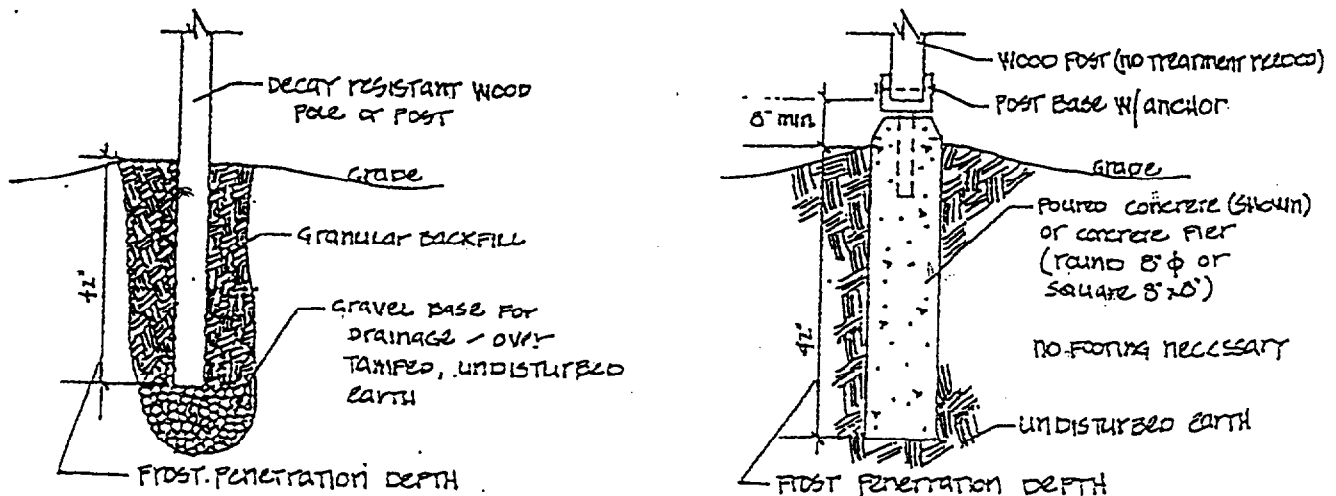 DECAY RESISTANT WOOD
POLE or POST
GRADE
GRANULAR BACKFILL
42"
GRAVEL BASE FOR
DRAINAGE / OVER
TAMPED, UNDISTURBED
EARTH
FROST PENETRATION DEPTH
WOOD POST (NO TREATMENT NEEDED)
POST BASE W/ANCHOR
8" MIN
GRADE
POURED CONCRETE (SHOWN)
OR CONCRETE PIER
(ROUND 8" φ OR
SQUARE 8"x8")
42"
NO FOOTING NECESSARY
UNDISTURBED EARTH
FROST PENETRATION DEPTH